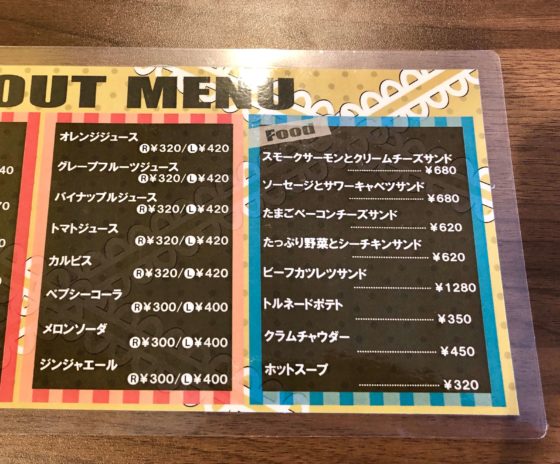 OUT MENU
40
70
0
0
オレンジジュース
Ⓡ¥320/Ⓛ¥420
グレープフルーツジュース
Ⓡ¥320/Ⓛ¥420
パイナップルジュース
Ⓡ¥320/Ⓛ¥420
トマトジュース
Ⓡ¥320/Ⓛ¥420
カルピス
Ⓡ¥320/Ⓛ¥420
ペプシーコーラ
Ⓡ¥300/Ⓛ¥400
メロンソーダ
Ⓡ¥300/Ⓛ¥400
ジンジャエール
Ⓡ¥300/Ⓛ¥400
Food
スモークサーモンとクリームチーズサンド
¥680
ソーセージとサワーキャベツサンド
¥680
たまごベーコンチーズサンド
¥620
たっぷり野菜とシーチキンサンド
¥620
ビーフカツレツサンド
¥1280
トルネードポテト
¥350
クラムチャウダー
¥450
ホットスープ
¥320